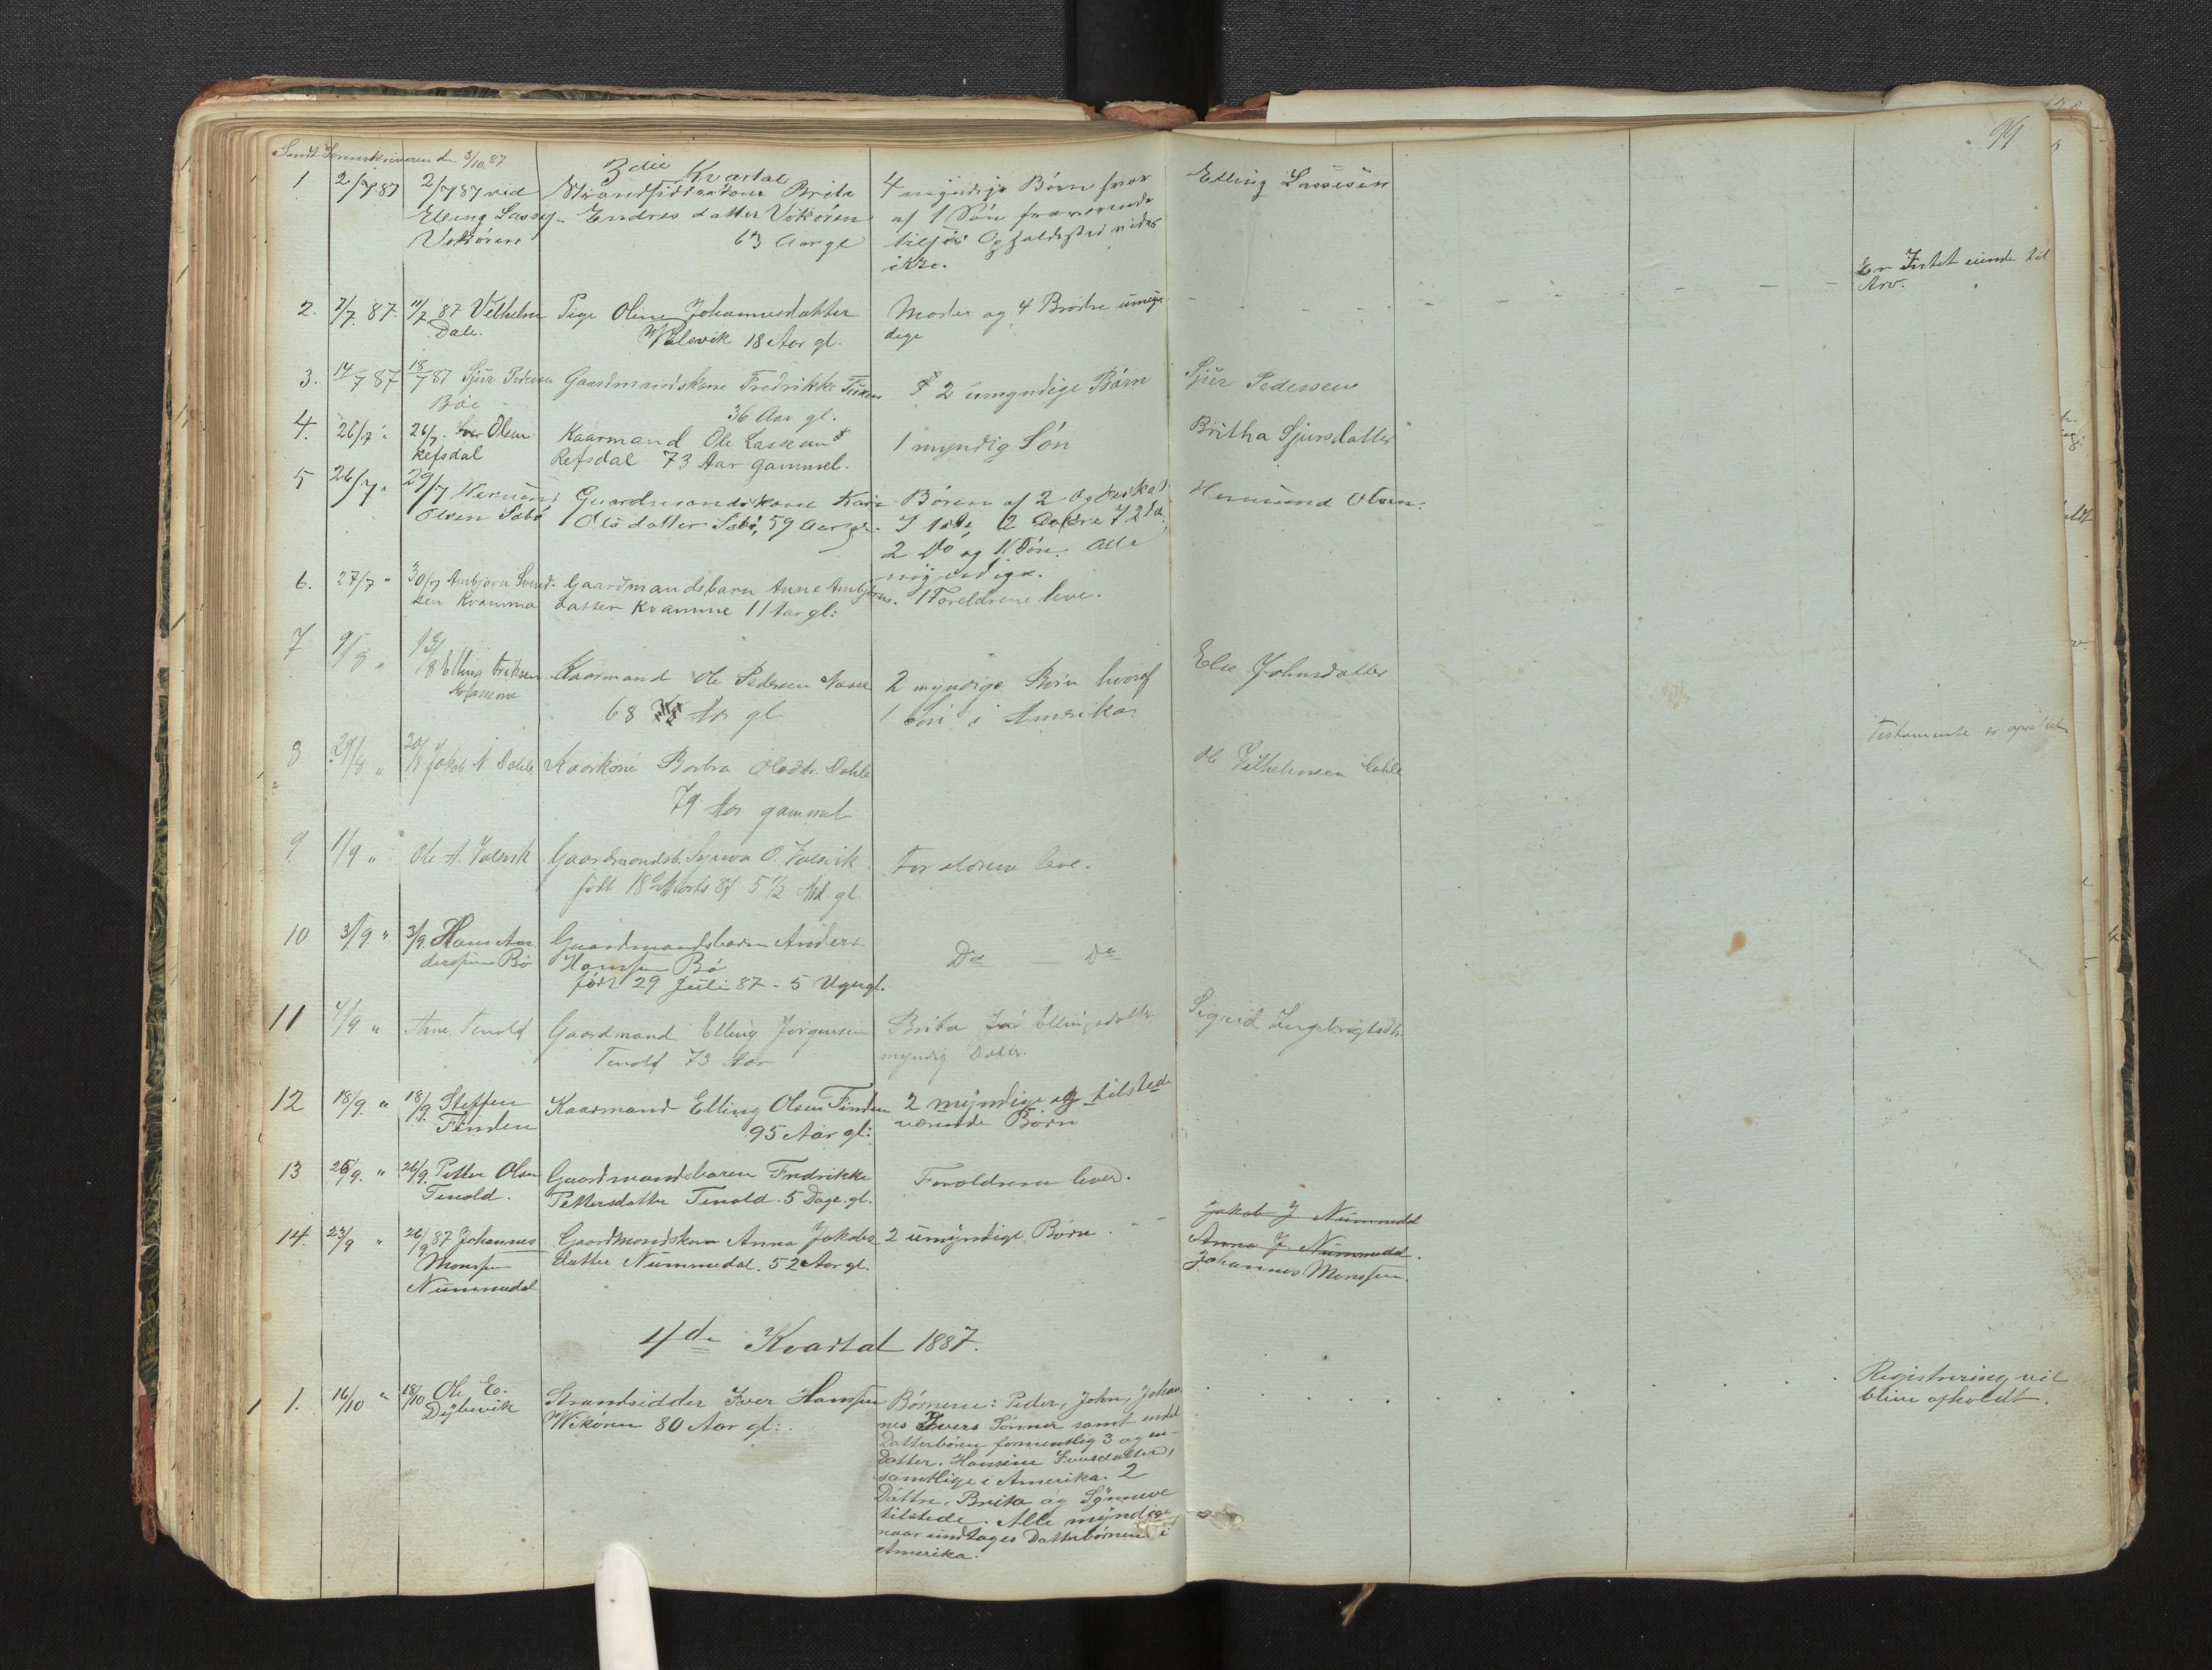 99
Sendt Sorenskriveren den 3/10 87
3die Kvartal
1 2/7 87 2/7 87 ved Strandsidderkone Brita 4 myndige Børn hvor Elling Lassesen
Elling Lasses. Endresdatter Vikøren af 1 Søn fraværende
Vikøren 63 Aar gl Opholdsted vides
ikke.
Er Intet eiende til
Arv.
2. 7/7 87. 11/7 87 Vilhelm Pige Oline Johannesdatter Moder og 4 Brødre umyn
Dale. Valsvik 18 Aar gl. dige
3. 14/7 87 18/7 87 Sjur Pedersen Gaardmandskone Fredrikke 2 umyndige Børn Sjur Pedersen
Böe 36 Aar gl.
4. 26/7 " 26/7. Iver Olsen Kaarmand Ole Lassesen 1 myndig Søn Britha Sjursdatter
Refsdal Refsdal 73 Aar gammel.
5 26/7 " 29/7 Hermund Gaardmandskone Kari Børen af 2 Ægteskab Hermund Olsen.
Olsen Sæbø Olsdatter Sæbø, 59 Aar gl. I 1ste 2 Døtre I 2det
2 Do og 1 Søn. Alle
myndige.
6. 27/7 " 30/7 Ambjørn Svend- Gaardmandsbarn Anne Ambjørns- Foreldrene leve.
sen Kvamme datter Kvamme 11 Aar gl:
7 9/8 " 13/8 Elling Eriksen Kaarmand Ole Pedersen Nesse 2 myndige Børn hvoraf Else Johnsdatter
68 Aar gl 1 søn i Amerika
8 29/8 " 30/8 Jakob N. Dahle Kaarkone Barbra Olsdtr. Dahle Ole Vilhelmsen Dahle Testamente er oprettet
79 Aar gammel
9. 1/9 " Ole A. Valsvik Gaardmandsb. Synva O. Valsvik Forældrene leve.
født 18de Marts 87 5 1/2 Md. gl.
10 3/9 " 3/9. Hans An- Gaardmandsbarn Anders Do — Do
derssen Bø Hanssen Bø
født 29 Juli 87 - 5 Uger gl.
11 4/9 " Arne Tenold Gaardmand Elling Jørgensen Brita Ellingsdatter Sigrid Ingebrigtsdtr.
Tenold 73 Aar myndig Datter.
12 18/9. " 18/9. Steffen Kaarmand Elling Olsen Finden 2 myndige og tilstede
Finden 95 Aar gl: værende Børn
13 25/9. " 26/9. Petter Olsen Gaardmandsbaren Fredrikke Forældrene lever.
Tenold. Pettersdatter Tenold. 5 Dage. gl.
14. 23/9 " 26/9 87 Johannes Gaardmandskone Anna Jakobs 2 umyndige Børn. Jakob J Nummedal
Monssen datter Nummedal. 52 Aar gl. Anna J. Nummedal.
Nummedal Johannes Monssen.
4de Kvartal 1887.
1. 16/10 " 18/10 Ole E. Strandsidder Iver Hanssen Børnene: Peder, John, Johan Registrering vil
Dybevik Wikøren 80 Aar gl: nes Ivers Sønner samt endel blive afholdt.
Datterbørn formentlig 3 og en
Datter. Hansine Iversdatter,
samtlige i Amerika. 2
Døttre, Brita og Synneve
tilstede. Alle myndige
naar undtages Datterbørnene i
Amerika.